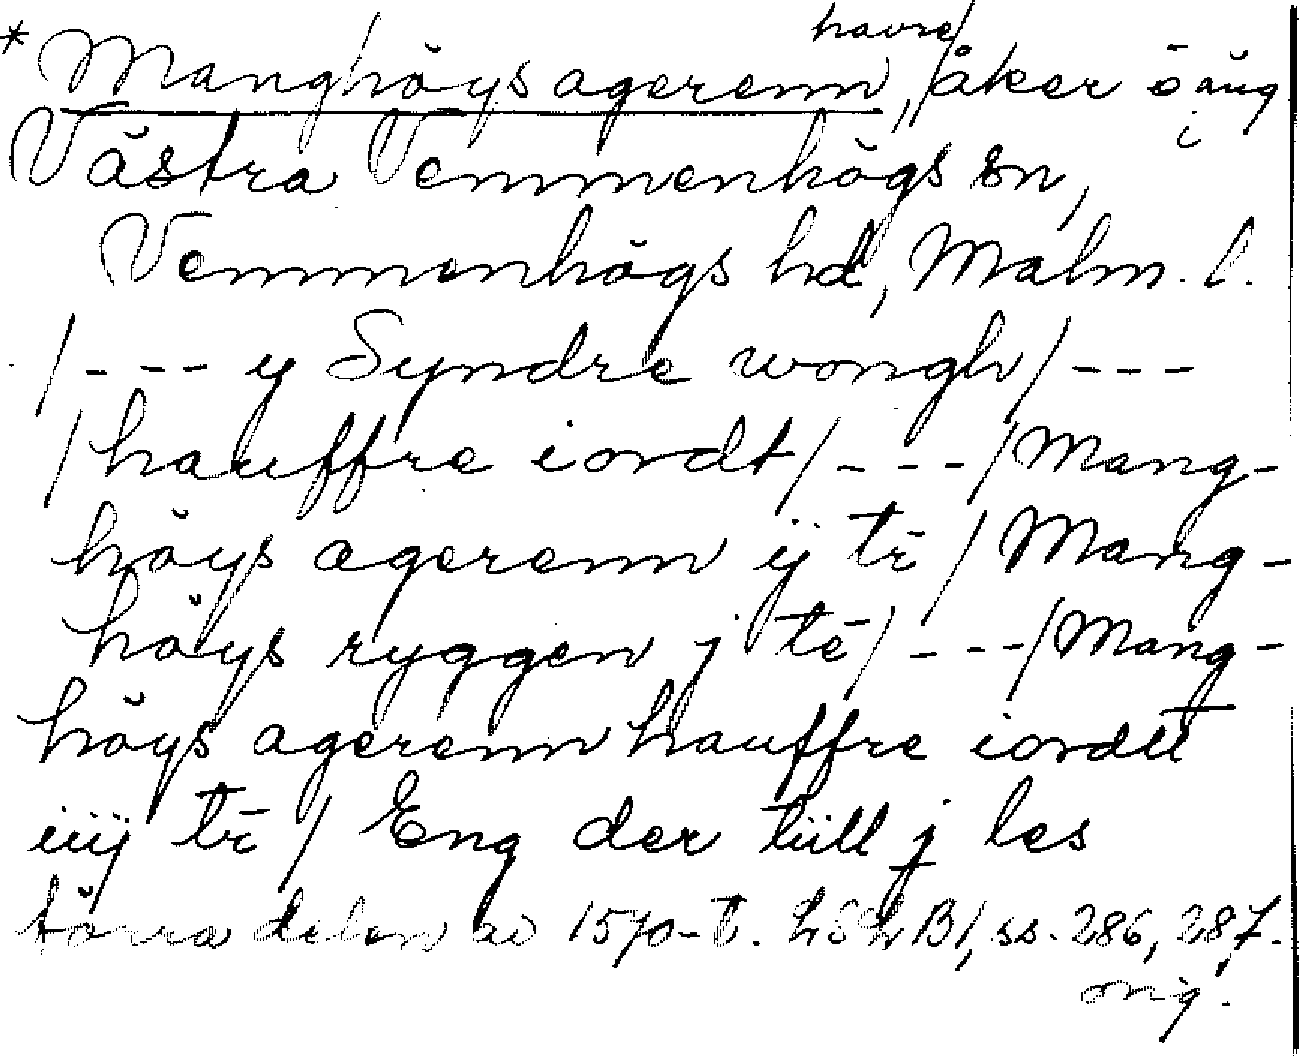 * Mang/höys agerenn, havre/åker o äng i
Västra Vemmenhögs sn,
Vemmenhögs hd, Malm. l.
/--- y Syndre wongh/---
/hauffre iordt/---/Mang-
höys agerenn ij tē/Mang-
höys ryggen j tē/---/Mang-
höys agerenn hauffre iordtt
iiij tē/Eng der tiill j les
förra delen av 1570-t. LSLB1, ss. 286, 287.
orig.